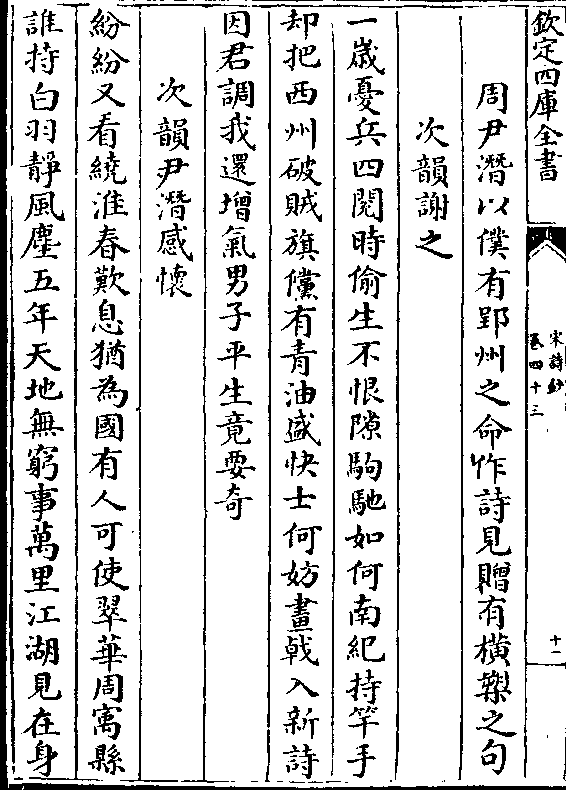 欽定四庫全書
宋詩鈔
卷四十三
十一
周尹潛以僕有郢州之命作詩見贈有橫槊之句
次韻謝之
一嵗憂兵四閱時偷生不恨隙駒馳如何南紀持竿手
却把西州破賊旗儻有青油盛快士何妨畫㦸入新詩
因君調我還增氣男子平生竟要奇
次韻尹潛感懷
紛紛又看繞淮春歎息猶為國有人可使翠華周寓縣
誰持白羽靜風塵五年天地無窮事萬里江湖見在身